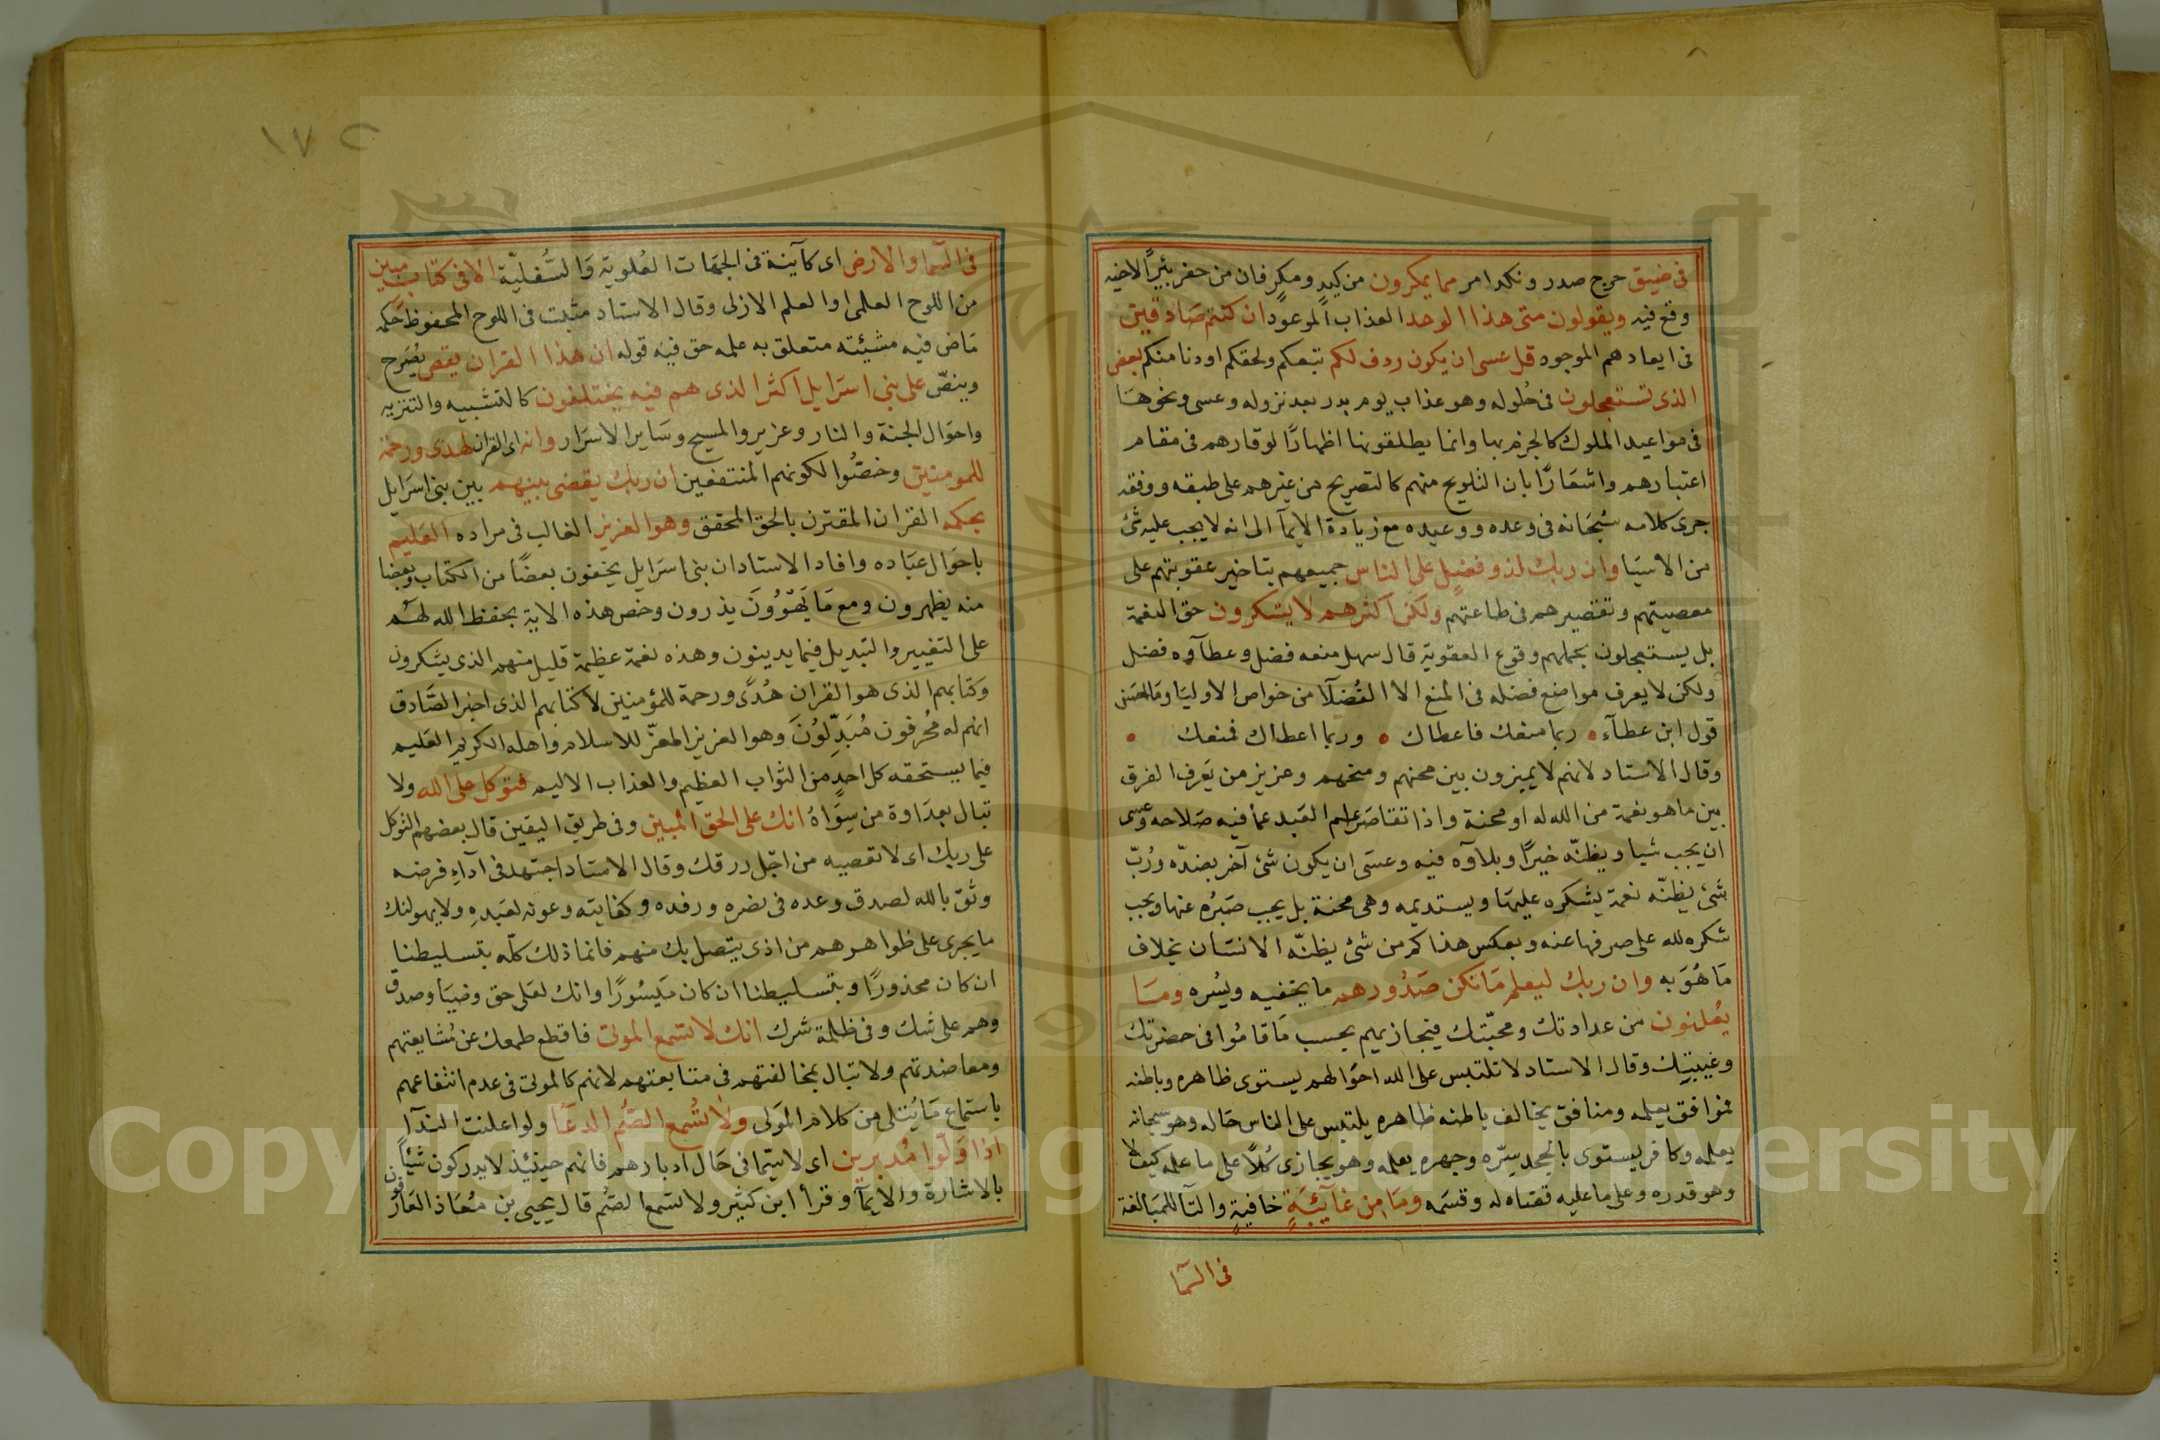 فى ضيق حرج صدر ونكد امر مما يمكرون من كيد ومكر فان من حفر بئرا لاخيه
وقع فيه ويقولون متى هذا الوعد العذاب الموعود ان كنتم صادقين
فى ايعادهم الموجود قل عسى ان يكون ردف لكم تبعكم ولحقكم اودنا منكم بعض
الذى تستعجلون فى حلوله وهو عذاب يوم بدر بعد نزوله وعسى ونحوها
فى مواعيد الملوك كالجزم بها وانما يطلقونها اظهارًا لوقارهم فى مقام
اعتبارهم واشعارًا بان التلويح منهم كالتصريح من غيرهم على طبقه ووفقه
جرى كلامه سبحانه فى وعده ووعيده مع زيادة الايمآ الى انه لا يجب عليه شئ
من الاشيا وان ربك لذو فضل على الناس جميعهم بتاخير عقوبتهم على
معصيتهم وتقصيرهم فى طاعتهم ولكن اكثرهم لا يشكرون حق النعمة
بل يستعجلون بجهلهم وقوع العقوبة قال سهل منعه فضل وعطآوه فضل
ولكن لا يعرف مواضع فضله فى المنع الا الفضلآ من خواص الاوليا وما احسن
قول ابن عطآء ربما منعك فاعطاك وربما اعطاك فمنعك
وقال الاستاد لانهم لا يميزون بين محنهم ومنحهم وعزيز من يعرف الفرق
بين ما هو نعمة من الله له او محنة واذا تقاصر علم العبد عما فيه صلاحه وعسى
ان يحب شيا ويظنّه خيرًا وبلاوه فيه وعسى ان يكون شئ آخر بضدّه ورُبّ
شئ يظنّه نعمة يشكره عليها ويستديمه وهى محنة بل يجب صبره عنها ويجب
شكره لله على صرفها عنه وبعكس هذا كم من شئ يظنّه الانسان بخلاف
ما هو به وان ربك ليعلم ما تكن صدورهم ما يخفيه ويسره وما
يعلنون من عداوتك ومحبّتك فيجازيهم بحسب ما قاموا فى حضرتك
وغيبتك وقال الاستاد لا تلتبس على الله احوالهم يستوى ظاهره وباطنه
فموافق يعلمه ومنافق يخالف باطنه ظاهره يلتبس على الناس حاله وهو سبحانه
يعلمه وكافر يستوى بالجحد سرّه وجهره يعلمه وهو يجازى كُلاً على ما علمه كيف لا
وهو قدره وعلى ما عليه قضاه له وقسمه وما من غآئبة خافية والتآ للمبالغة
فى السما
١٧٢
فى السما والارض اى كآينة فى الجهات العلوية والسُّفليّة الا فى كتاب مبين
من اللوح العلمى او العلم الازلى وقال الاستاد مثبت فى اللوح المحفوظ حكمه
ماض فيه مشيئته متعلق به علمه حق فيه قوله ان هذا القران يقص يُصَرح
وينصّ على بنى اسرايل اكثر الذى هم فيه يختلفون كالتشبيه والتنزيه
واحوال الجنة والنار وعزير والمسيح وساير الاسرار وانه اى القران لهدى ورحمة
للمومنين وخصّوا لكونهم المنتفعين ان ربك يقضى بينهم بين بنى اسرايل
بحكمه القران المقترن بالحق المحقق وهو العزيز الغالب فى مراده العليم
باحوال عباده وافاد الاستاد ان بنى اسرايل يخفون بعضًا من الكتاب وبعضا
منه يظهرون ومع ما يَهْوُوْنَ يذرون وخص هذه الاية بحفظ الله لهم
على التغيير والتبديل فيما يدينون وهذه نعمة عظيمة قليل منهم الذى يشكرون
وكتابهم الذى هو القران هُدًى ورحمة للمؤمنين لا كتابهم الذى اخبر الصّادق
انهم له محرفون مُبَدِّلُونَ وهو العزيز المعزّ للاسلام واهله الكريم العليم
فيما يستحقه كل احد من الثواب العظيم والعذاب الاليم فتوكل على الله ولا
تبال بعداوة من سِوَاهُ انك على الحق المبين وفى طريق اليقين قال بعضهم التوكل
على ربك اى لا تعصيه من اجل رزقك وقال الاستاد اجتهد فى اداء فرضه
وثق بالله لصدق وعده فى نصره ورفده وكفايته وعونه لعبده ولا يهولنك
ما يجرى على ظواهرهم من اذى يتصل بك منهم فانما ذلك كلّه بتسليطنا
ان كان محذورًا وبتسليطنا ان كان ميسُورًا وانك لعلى حق وضيا وصدق
وهم على شك وفى ظلمة شرك انك لا تسمع الموتى فاقطع طمعك عن مُشايعتهم
ومعاضدتهم ولا تبال بمخالفتهم فى متابعتهم لانهم كالموتى فى عدم انتفاعهم
باستماع ما يُتلى من كلام المولى ولا تُسمع الصُّم الدعَا ولو اعلنت الندآ
اذا وَلّوا مُدبرين اى لا سيّما فى حال ادبارهم فانهم حينئذ لا يدركون شيئاً
بالاشارة والايمآ وقرأ ابن كثير ولا تسمع الصُّم قال يحيى بن مُعاذ العارفون
Copyright © King Saud University